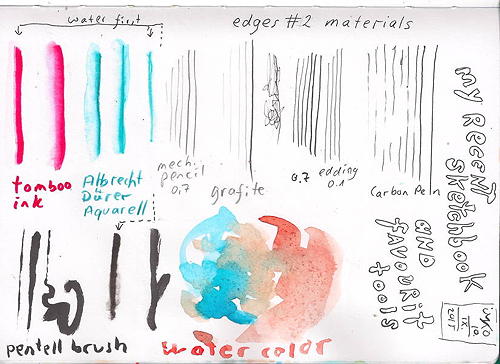 water first
edges #2 materials
tomboo
ink
Albrecht
Dürer
Aquarell
mech.
pencil
0,7
grafite
0.7
edding
0.1
Carbon Pen
my RECENT
sketchbook
AND
FAVOURIT
tools
pentell brush
water color